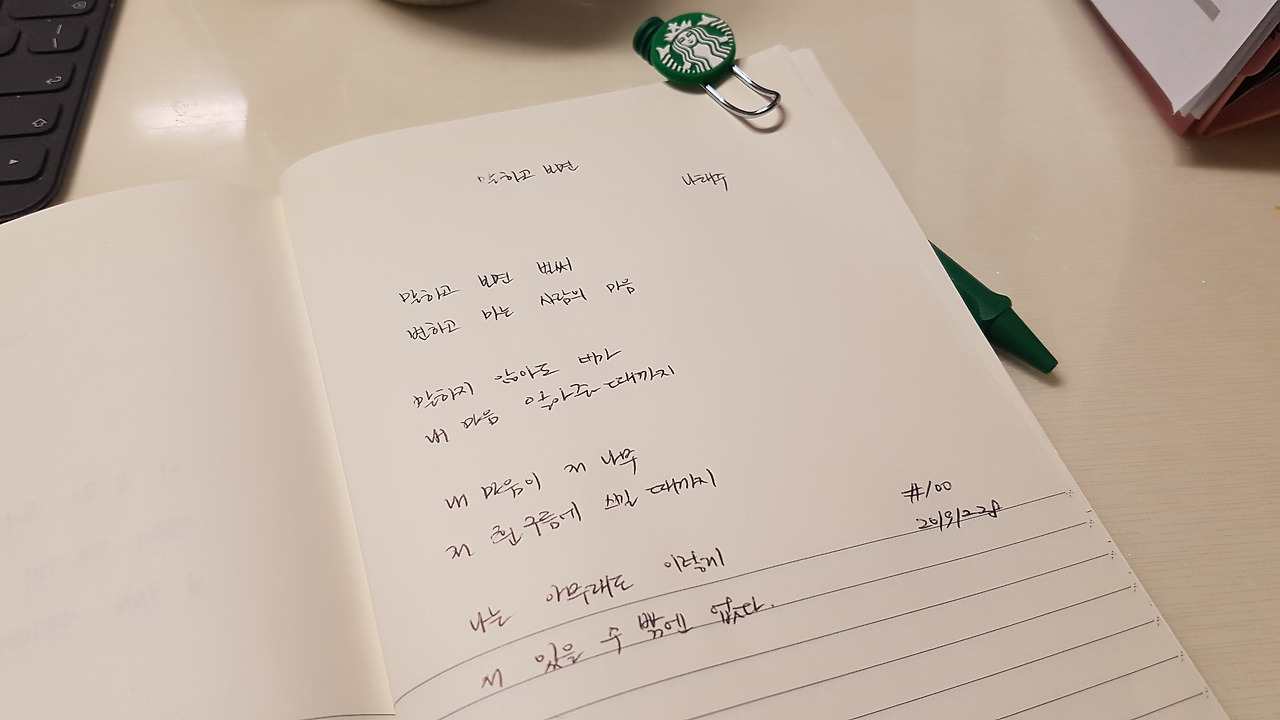 말하고 보면
나태주
말하고 보면 벌써
변하고 마는 사람의 마음
말하지 않아도 네가
내 마음 알아줄 때까지
내 마음이 저 나무
저 흰구름에 스밀 때까지
나는 아무래도 이렇게
서 있을 수 밖에 없다.
#100
20191228